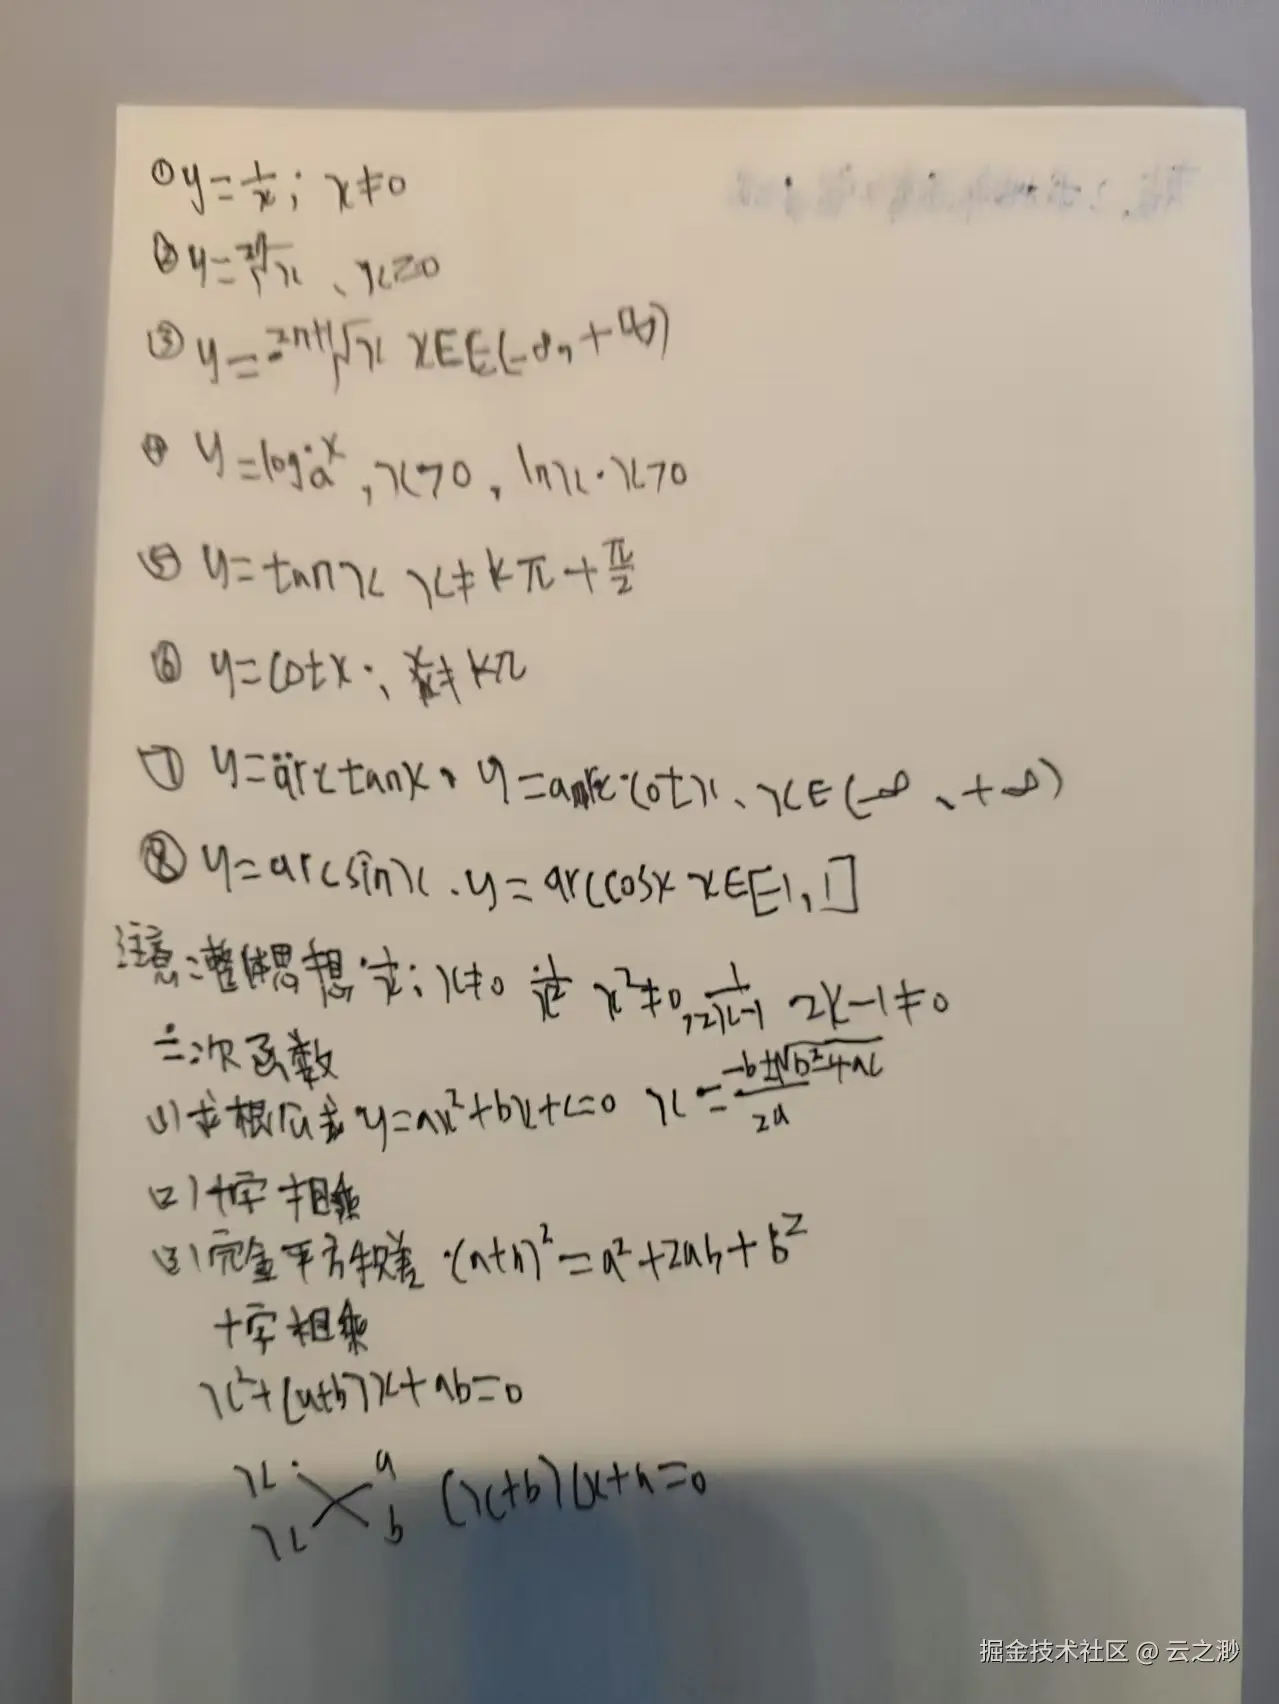 ① y=1/x; x≠0
② y=²ⁿ√x、x≥0
③ y=²ⁿ⁺¹√x x∈(-∞,+∞)
④ y=logₐx, x>0, lnx·x>0
⑤ y=tanx x≠kπ+π/2
⑥ y=cotx·、x≠kπ
⑦ y=arctanx、y=arccotx、x∈(-∞、+∞)
⑧ y=arcsinx.y=arccosx x∈[-1,1]
注意:整体思想·1/x; x≠0 1/x² x²≠0, 1/2x-1 2x-1≠0
二次函数
(1)求根公式 y=ax²+bx+c=0 x=-b±√b²-4ac/2a
(2)十字相乘
(3)完全平方和差·(a+b)²=a²+2ab+b²
十字相乘
x²+(a+b)x+ab=0
x a
x b (x+b)(x+a=0
掘金技术社区 @ 云之渺